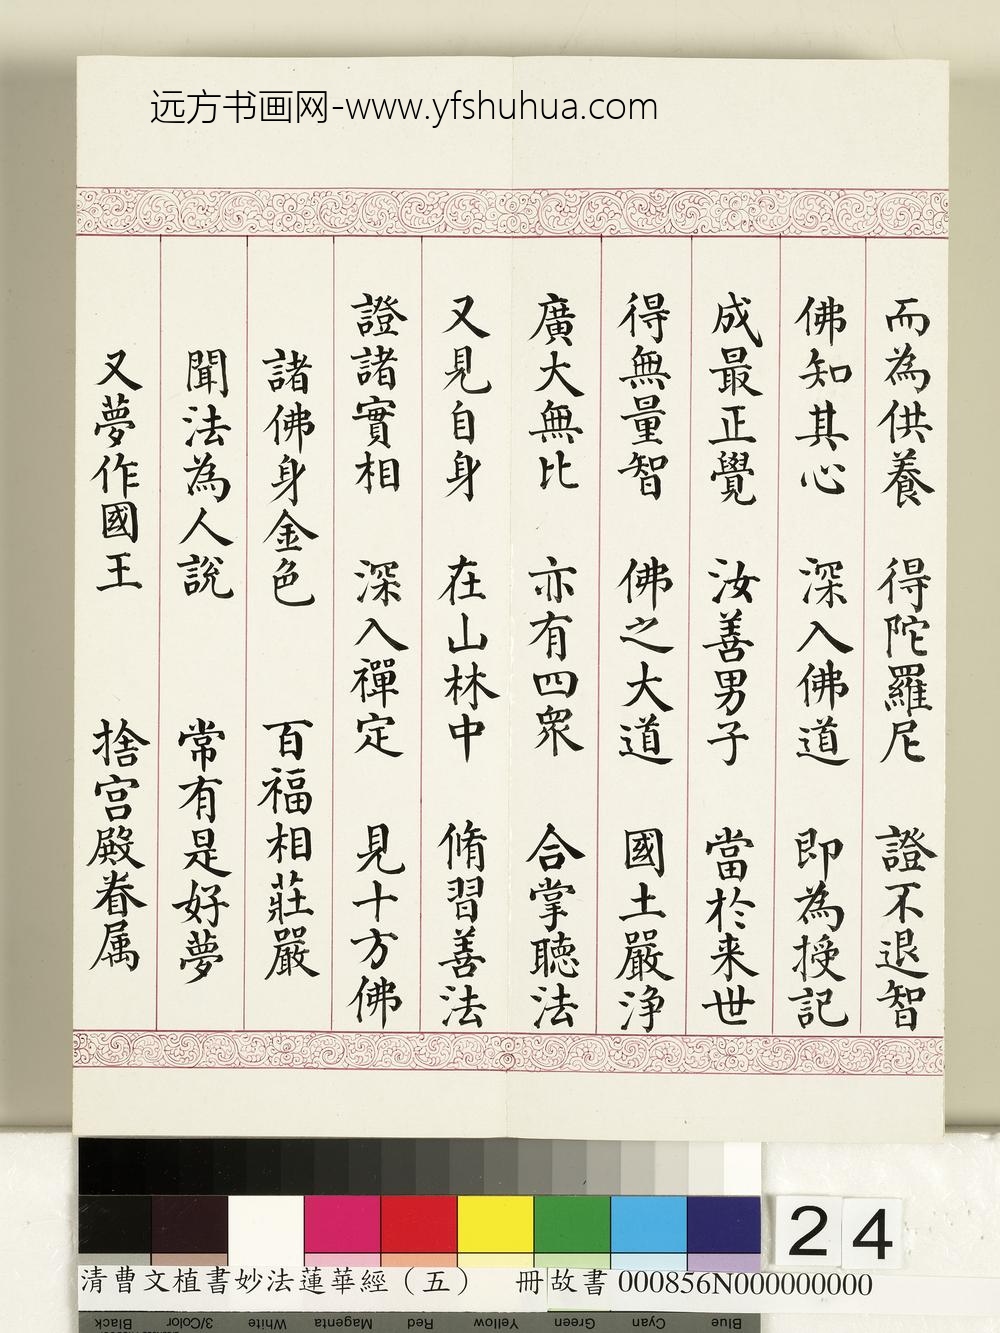 远方书画网-www.yfshuhua.com
而為供養 得陀羅尼 證不退智
佛知其心 深入佛道 即為授記
成最正覺 汝善男子 當於来世
得無量智 佛之大道 國土嚴淨
廣大無比 亦有四眾 合掌聽法
又見自身 在山林中 脩習善法
證諸實相 深入禪定 見十方佛
諸佛身金色 百福相莊嚴
聞法為人說 常有是好夢
又夢作國王 捨宮殿眷属
24
清曹文植書妙法蓮華經（五） 冊 故書 000856N000000000
Black 3/Color White Magenta Red Yellow Green Cyan Blue